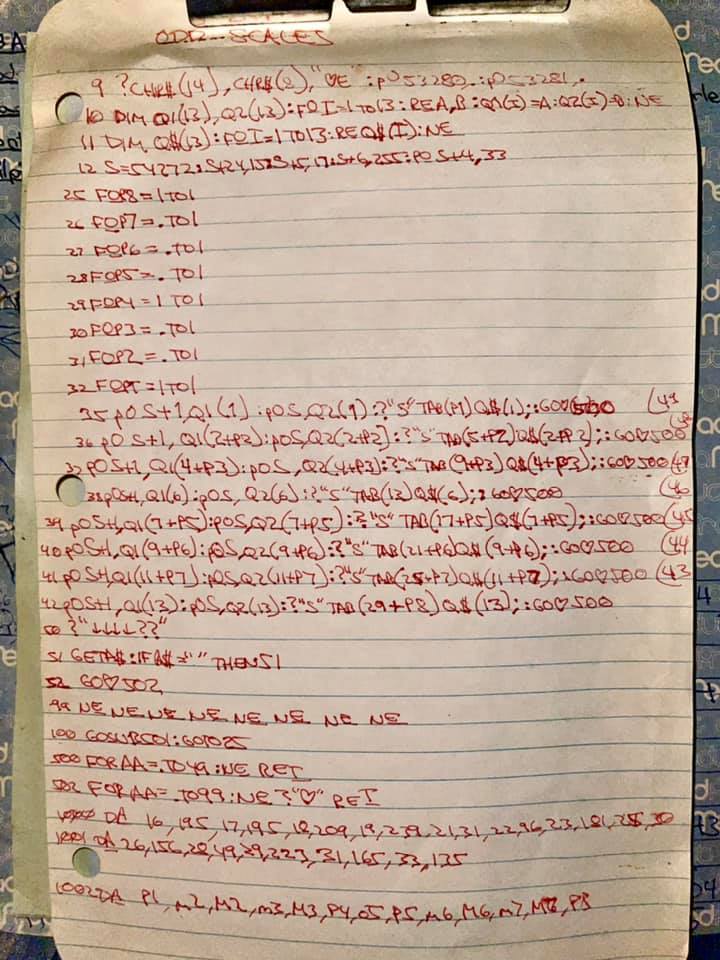 ODD-SCALES
9 ?CHR$(14),CHR$(8),"♡E":pO53280,.:pO53281,.
10 DIM Q1(13),Q2(13):FOI=1TO13:REA,B:Q1(I)=A:Q2(I)=B:NE
11 DIM Q$(13):FOI=1TO13:REQ$(I):NE
12 S=54272:S+24,15:S+5,17:S+6,255:POS+4,33
25 FOP8=1TO1
26 FOP7=.TO1
27 FOP6=.TO1
28 FOP5=.TO1
29 FOP4=1TO1
30 FOP3=.TO1
31 FOP2=.TO1
32 FOP1=1TO1
35 pOS+1,Q1(1):pOS,Q2(1):?"S"TAB(P1)Q$(1);:GO♡500 (49
36 pOS+1,Q1(2+P2):pOS,Q2(2+P2):?"S"TAB(5+P2)Q$(2+P2);:GO♡500
37 pOS+1,Q1(4+P3):pOS,Q2(4+P3):?"S"TAB(9+P3)Q$(4+P3);:GO♡500 (47
38 pOS+1,Q1(6):pOS,Q2(6):?"S"TAB(13)Q$(6);:GO♡500 (46
39 pOS+1,Q1(7+P5):pOS,Q2(7+P5):?"S"TAB(17+P5)Q$(7+P5);:GO♡500 (45
40 pOS+1,Q1(9+P6):pOS,Q2(9+P6):?"S"TAB(21+P6)Q$(9+P6);:GO♡500 (44
41 pOS+1,Q1(11+P7):pOS,Q2(11+P7):?"S"TAB(25+P7)Q$(11+P7);:GO♡500 (43
42 pOS+1,Q1(13):pOS,Q2(13):?"S"TAB(29+P8)Q$(13);:GO♡500
50 ?"↓↓↓↓??"
51 GETA$:IFA$=""THEN51
52 GO♡502
99 NE NE NE NE NE NE NE NE
100 GOSUB501:GOTO25
500 FORAA=.TO49:NE RET
502 FORAA=.TO99:NE?"♡" RET
1000 DA 16,195,17,195,18,209,19,239,21,31,22,96,23,181,25,30
1001 DA 26,156,28,49,29,223,31,165,33,135
1002 DA P1,m2,M2,m3,M3,P4,o5,P5,m6,M6,m7,M7,P8